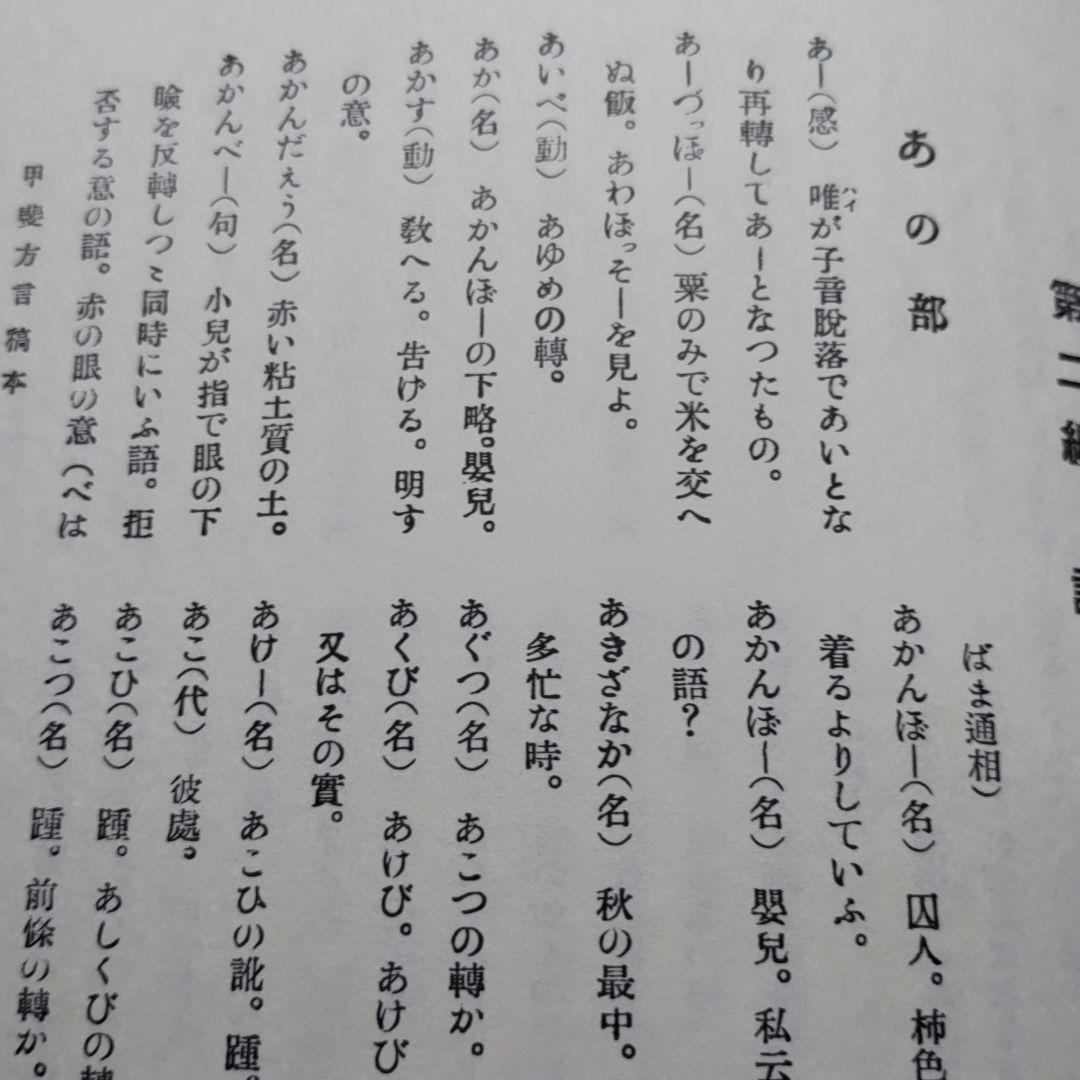 第二編
あの部
あー(感) 唯が子音脱落であいとな
ハイ
り再轉してあーとなつたもの。
あーづっぽー(名) 粟のみで米を交へ
ぬ飯。あわぼっそーを見よ。
あいべ(動) あゆめの轉。
あか(名) あかんぼーの下略。嬰兒。
あかす(動) 敎へる。告げる。明す
の意。
あかんだぇう(名) 赤い粘土質の土。
あかんべー(句) 小兒が指で眼の下
瞼を反轉しつゝ同時にいふ語。拒
否する意の語。赤の眼の意(べは
ばま通相)
あかんぼー(名) 囚人。柿色
着るよりしていふ。
あかんぼー(名) 嬰兒。私云
の語?
あきざなか(名) 秋の最中。
多忙な時。
あぐつ(名) あこつの轉か。
あくび(名) あけび。あけび
又はその實。
あけー(名) あこひの訛。踵。
あこ(代) 彼處。
あこひ(名) 踵。あしくびの轉
あこつ(名) 踵。前條の轉か。
甲斐方言稿本